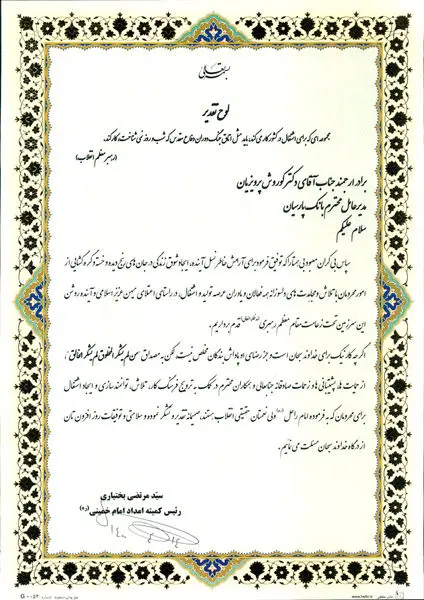 بسمه تعالی
لوح تقدیر
مجموعه‌ای که برای اشتغال در کشور کار می‌کند، باید مثل اتاق جنگ دوران دفاع مقدس که شب و روز نمی‌شناخت، کار کند.
(رهبر معظم انقلاب)
برادر ارجمند جناب آقای دکتر کوروش پرویزیان
مدیر عامل محترم بانک پارسیان
سلام علیکم
سپاس بی کران معبود بی همتا را که توفیق فرمود برای آرامش خاطر نسل آینده، ایجاد شوق زندگی در جان‌های رنج دیده و خسته و گره گشایی از
امور محرومان با تلاش و مجاهدت‌های دلسوزانه همه فعالان و یاوران عرصه تولید و اشتغال، در راستای اعتلای میهن عزیز اسلامی و آینده روشن
این سرزمین تحت زعامت مقام معظم رهبری (مدظله العالی) قدم برداریم.
اگرچه کار نیک برای خداوند سبحان است و جز رضای او پاداش بندگان مخلص نیست، لکن به مصداق من لم یشکر المخلوق لم یشکر الخالق
از حمایت‌ها، پشتیبانی‌ها و زحمات صادقانه جنابعالی و همکاران محترم در کمک به ترویج فرهنگ کار، تلاش، توانمندسازی و ایجاد اشتغال
برای محرومان که به فرموده امام راحل ولی نعمتان حقیقی انقلاب هستند، صمیمانه تقدیر و تشکر نموده و سلامتی و توفیقات روز افزون تان
از درگاه خداوند سبحان مسئلت می نمایم.
سیّد مرتضی بختیاری
رئیس کمیته امداد امام خمینی (ره)
www.hefni.ir